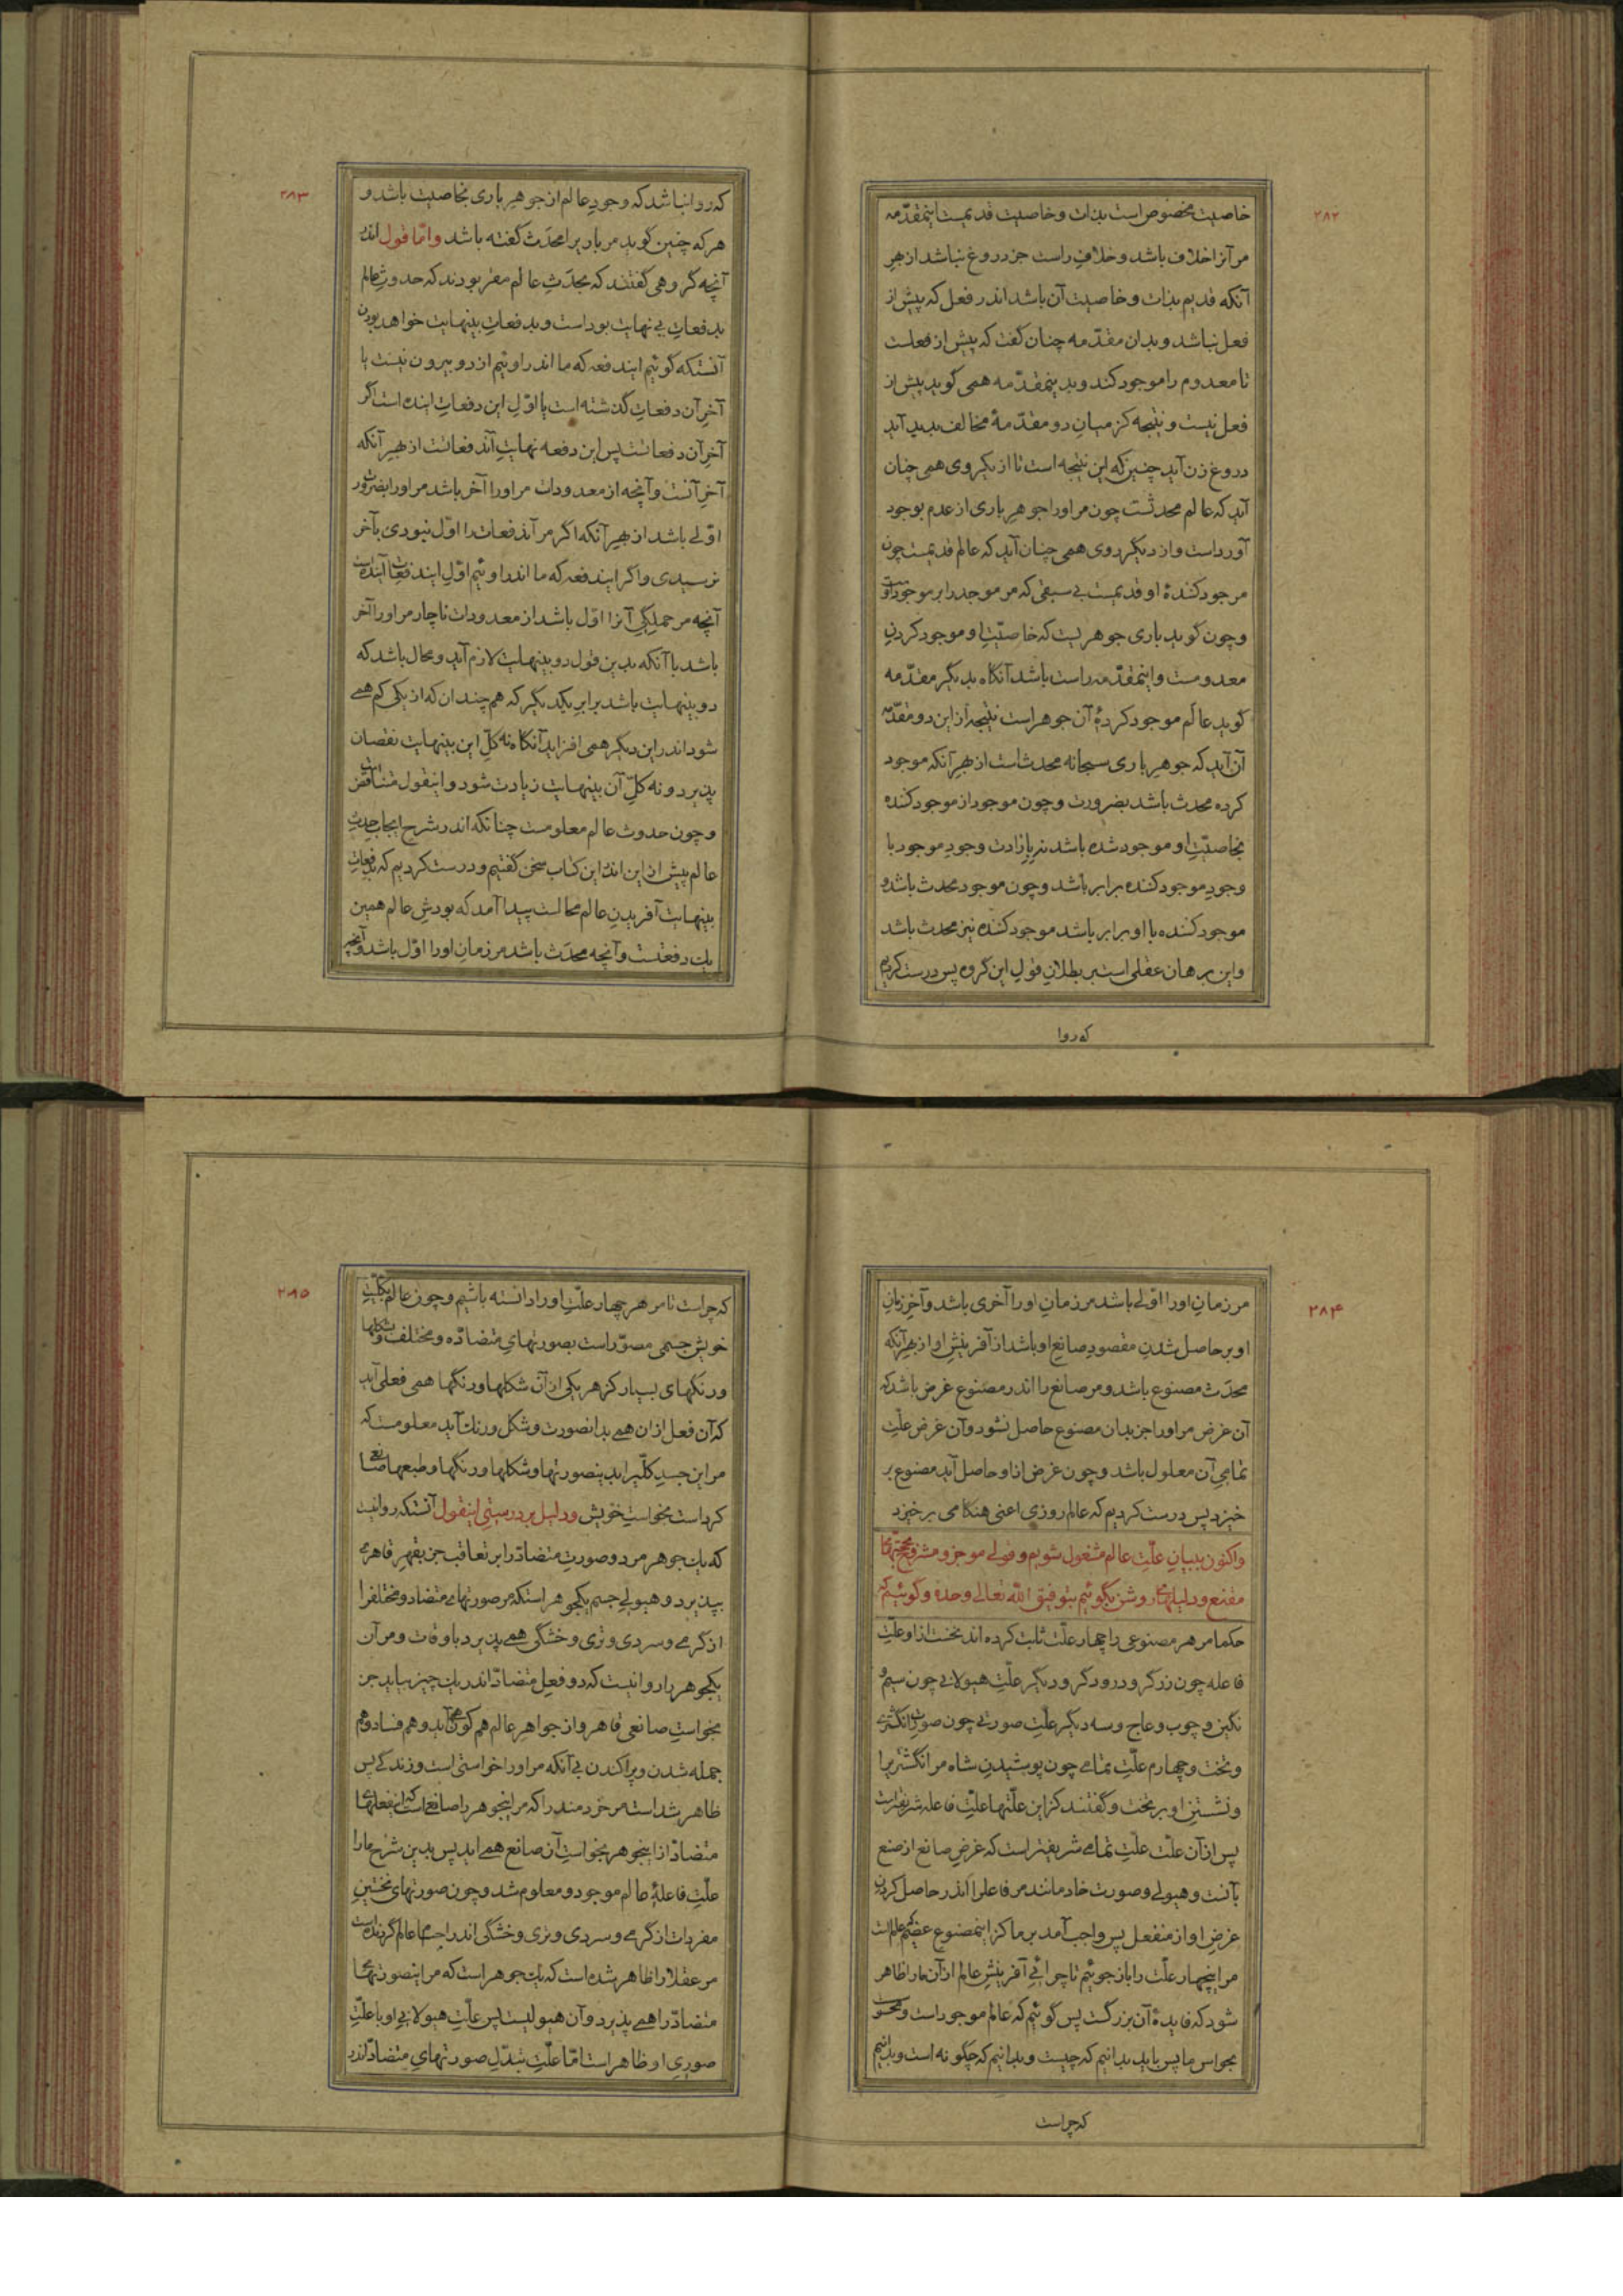 ۲۸۲
خاصیت مخصوص است بذات و خاصیت قدیمست اینمقدّمه
مر آنرا خلاف باشد و خلافِ راست جز دروغ نباشد از بهرِ
آنکه قدیم بذات و خاصیت آن باشد اندر فعل که پیش از
فعل نباشد و بدان مقدّمه چنان گفت که پیش از فعلست
تا معدوم را موجود کند و بدینمقدّمه همی گوید پیش از
فعل نیست و نتیجه کز میانِ دو مقدّمهٔ مخالف پدید آید
دروغ زن آید چنین که این نتیجه است تا از یکروی همی چنان
آید که عالم محدثست چون مر او را جوهرِ باری از عدم بوجود
آورداست و از دیگر روی همی چنان آید که عالم قدیمست چون
موجود کنندهٔ او قدیمست بی سبقی که مر موجد را بر موجودات
و چون گوید باری جوهریست که خاصیّتِ او موجود کردنِ
معدومست و اینمقدّمه راست باشد آنگاه بدیگر مقدّمه
گوید عالم موجود کردهٔ آن جوهر است نتیجه از این دو مقدّمه
آن آید که جوهرِ باری سبحانه محدث است از بهرِ آنکه موجود
کرده محدث باشد بضرورت و چون موجود از موجود کننده
بخاصیّتِ او موجود شده باشد نه بارادت وجودِ موجود با
وجودِ موجود کننده برابر باشد و چون موجود محدث باشد و
موجود کننده با او برابر باشد موجود کننده نیز محدث باشد
و این برهان عقلی است بر بطلانِ قولِ این گروه پس درست کردیم
که روا
۲۸۳
که روا نباشد که وجودِ عالم از جوهرِ باری بخاصیت باشد و
هر که چنین گوید مر باریرا محدَث گفته باشد وامّا قول اندر
آنچه گروهی گفتند که بحدَثِ عالم مقر بودند که حدوثِ عالم
بدفعاتِ بی نهایت بوداست و بدفعاتِ بینهایت خواهد بودن
آنستکه گوئیم ایندفعه که ما اندر اوئیم از دو بیرون نیست یا
آخرِ آن دفعاتِ گذشته است یا اوّلِ این دفعاتِ آینده است اگر
آخرِ آن دفعاتست پس این دفعه نهایتِ آندفعاتست از بهرِ آنکه
آخرِ آنست و آنچه از معدودات مر او را آخر باشد مر او را بضرورت
اوّلی باشد از بهرِ آنکه اگر مر آندفعات را اوّل نبودی بآخر
نرسیدی و اگر ایندفعه که ما اندر اوئیم اوّلِ ایندفعات آینده است
آنچه مر جملگیِ آنرا اوّل باشد از معدودات ناچار مر او را آخر
باشد با آنکه بدین قول دو بینهایت لازم آید و محال باشد که
دو بینهایت باشد برابرِ یکدیگر که هم چندان که از یکی کم همی
شود اندر این دیگر همی افزاید آنگاه نه کلِّ این بینهایت نقصان
پذیرد و نه کلِّ آن بینهایت زیادت شود و اینقول متناقض است
و چون حدوث عالم معلومست چنانکه اندر شرح ایجابِ حدثِ
عالم پیش از این اندر این کتاب سخن گفتیم و درست کردیم که بدفعاتِ
بینهایت آفریدنِ عالم محالست پیدا آمد که بودشِ عالم همین
یک دفعتست و آنچه محدَث باشد مر زمانِ او را اوّل باشد و آنچه
۲۸۴
مر زمانِ او را اوّلی باشد مر زمانِ او را آخری باشد و آخرِ زمانِ
او بر حاصل شدنِ مقصودِ صانعِ او باشد از آفرینشِ او از بهرِ آنکه
محدَث مصنوع باشد و مر صانع را اندر مصنوع غرض باشد که
آن غرض مر او را جز بدان مصنوع حاصل نشود و آن غرض علّتِ
تمامیِ آن معلول باشد و چون غرض از او حاصل آید مصنوع بر
خیزد پس درست کردیم که عالم روزی اعنی هنگامی برخیزد
و اکنون ببیانِ علّتِ عالم مشغول شویم و قولی موجز و مشروح بحجّتهای
مقنع و دلیلهای روشن بگوئیم بتوفیق اللّه تعالی وحده و گوئیم که
حکما مر هر مصنوعی را چهار علّت ثابت کرده اند نخست از او علّتِ
فاعله چون زرگر و درودگر و دیگر علّتِ هیولانی چون سیم و
نگین و چوب و عاج و سه دیگر علّتِ صورتی چون صورتِ انگشتری
و تخت و چهارم علّتِ تمامی چون پوشیدنِ شاه مر انگشتریرا
و نشستنِ او بر تخت و گفتند کز این علّتها علّتِ فاعله شریفتر است
پس از آن علّت علّتِ تمامی شریفتر است که غرضِ صانع از صنع
بآنست و هیولی و صورت خادمانند مر فاعلرا اندر حاصل کردنِ
غرضِ او از منفعل پس واجب آمد بر ما کز اینمصنوعِ عظیم که عالم است
مر اینچهار علّت را باز جوئیم تا چرائیِ آفرینشِ عالم از آن ما را ظاهر
شود که فایدهٔ آن بزرگست پس گوئیم که عالم موجود است و محسوست
بحواسِ ما پس باید بدانیم که چیست و بدانیم که چگونه است و بدانیم
که چراست
۲۸۵
که چراست تا مر هر چهار علّتِ او را دانسته باشیم و چون عالم بکلّیّتِ
خویش جسمی مصوّر است بصورتهای متضادّه و مختلف و شکلها
و رنگهای بسیار کز هر یکی از آن شکلها و رنگها همی فعلی آید
که آن فعل از ان همی بدانصورت و شکل و رنگ آید معلومست که
مر این جسدِ کلّیرا بدینصورتها و شکلها و رنگها و طبعها صانعی
کرداست بخواستِ خویش و دلیل بر درستیِ اینقول آنستکه روا نیست
که یک جوهر مر دو صورتِ متضادّ را بر تعاقب جز بقهرِ قاهری
بپذیرد و هیولیِ جسم یکجوهر استکه مر صورتهای متضاد و مختلفرا
از گرمی و سردی و تری و خشکی همی پذیرد باوقات و مر آن
یکجوهر را روا نیست که دو فعلِ متضادّ اندر یک چیز بیاید جز
بخواستِ صانعی قاهر و از جواهرِ عالم هم کون همی آید و هم فساد و هم
جمله شدن و پراکندن بی آنکه مر او را خواستی است و زندگی پس
ظاهر شداست مر خردمند را که مر اینجوهر را صانعی است که این فعلهای
متضادّ از اینجوهر بخواستِ آن صانع همی اید پس بدین شرح ما را
علّتِ فاعلهٔ عالم موجود و معلوم شد و چون صورتهای نخستینِ
مفردات از گرمی و سردی و تری و خشکی اندر اجسامِ عالم گردنده است
مر عقلا را ظاهر شده است که یک جوهر است که مر اینصورتهای
متضادّ را همی پذیرد و آن هیولیست پس علّتِ هیولانیِ او با علّتِ
صوریِ او ظاهر است امّا علّتِ تبدّلِ صورتهایِ متضادّ اندر